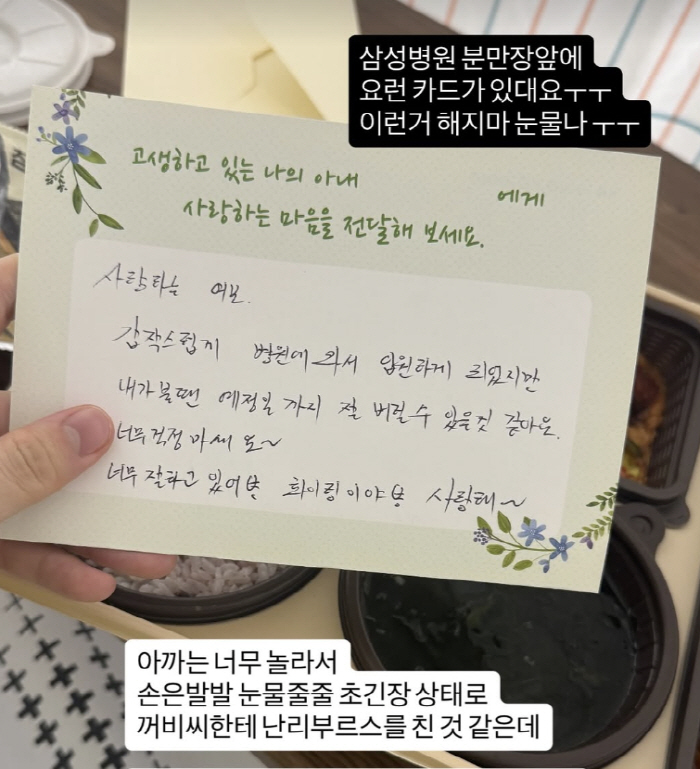 삼성병원 분만장앞에
요런 카드가 있대요ㅜㅜ
이런거 해지마 눈물나 ㅜㅜ
고생하고 있는 나의 아내 에게
사랑하는 마음을 전달해 보세요.
사랑하는 여보.
갑작스럽게 병원에 와서 입원하게 되었지만
내가 볼땐 예정일 까지 잘 버틸수 있을것 같아요.
너무 걱정 마세요~
너무 잘하고 있어 화이팅이야 사랑해~
아까는 너무 놀라서
손은발발 눈물줄줄 초긴장 상태로
꺼비씨한테 난리부르스를 친 것 같은데